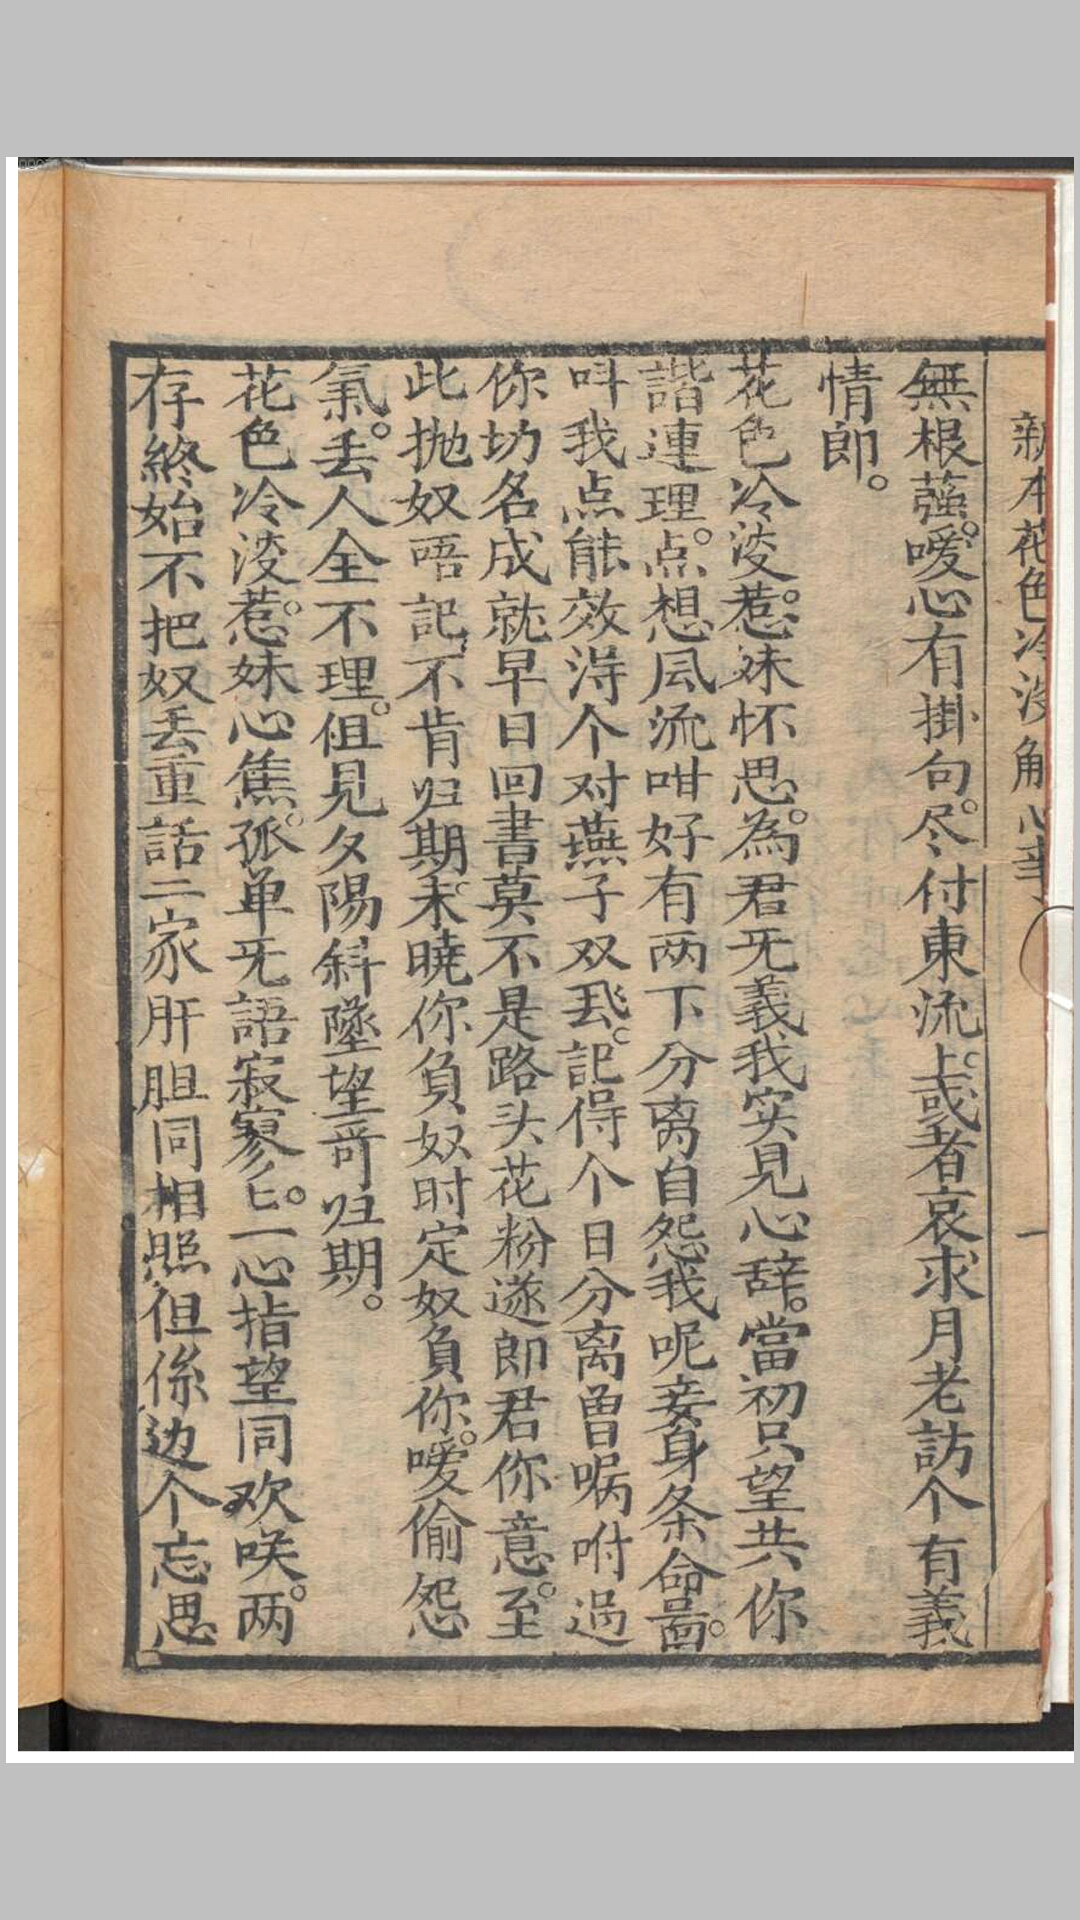 新本花色冷淡解心事
一
無根蕴。噯心有掛句。尽付東流。或者哀求月老訪个有義
情郎。
花色冷淡。惹妹怀思。為君旡義我实見心辞。當初只望共你
諧連理。点想風流咁好有两下分离自怨我呢妾身条命啚。
呌我点能效淂个对燕子双飛。記得个日分离曽嘱咐過
你功名成就早日回書莫不是路头花粉遂郎君你意。至
此抛奴唔記，不肯归期。未曉你負奴时定奴負你。噯偷怨
氣。丢人全不理。但見夕陽斜墜望哥归期。
花色冷淡。惹妹心焦。孤单旡語寂寥〻。一心指望同欢咲。两
存終始不把奴丢重話二家肝胆同相照但係边个忘思